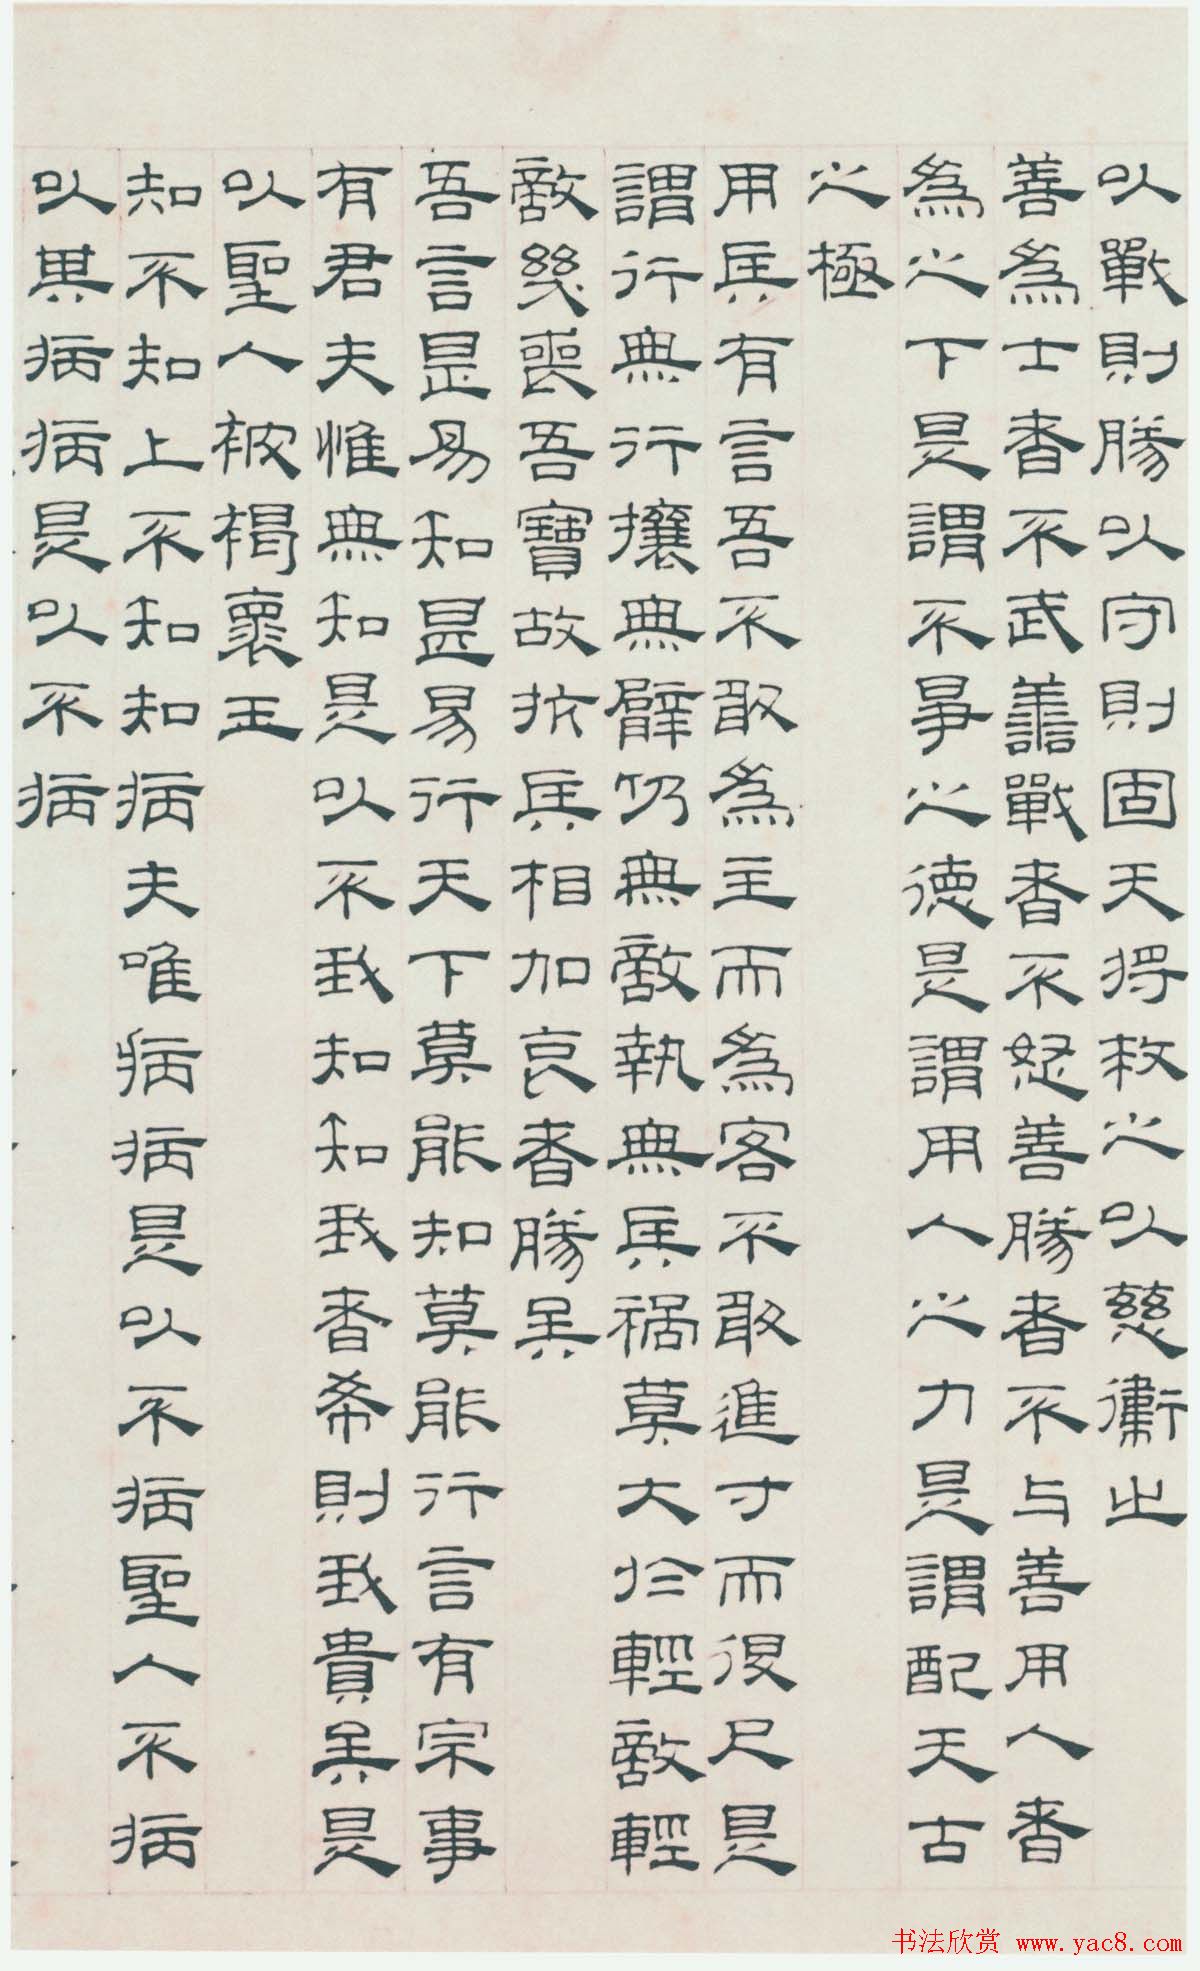 以戰則勝以守則固天将救之以慈衞之
善為士者不武善戰者不怒善勝者不与善用人者
為之下是謂不爭之德是謂用人之力是謂配天古
之極
用兵有言吾不敢為主而為客不敢進寸而退尺是
謂行無行攘無臂仍無敵執無兵禍莫大於輕敵輕
敵幾喪吾寶故抗兵相加哀者勝矣
吾言是易知甚易行天下莫能知莫能行言有宗事
有君夫惟無知是以不我知知我者希則我貴矣是
以聖人被褐褱玉
知不知上不知知病夫唯病病是以不病聖人不病
以其病病是以不病
书法欣赏 www.yac8.com